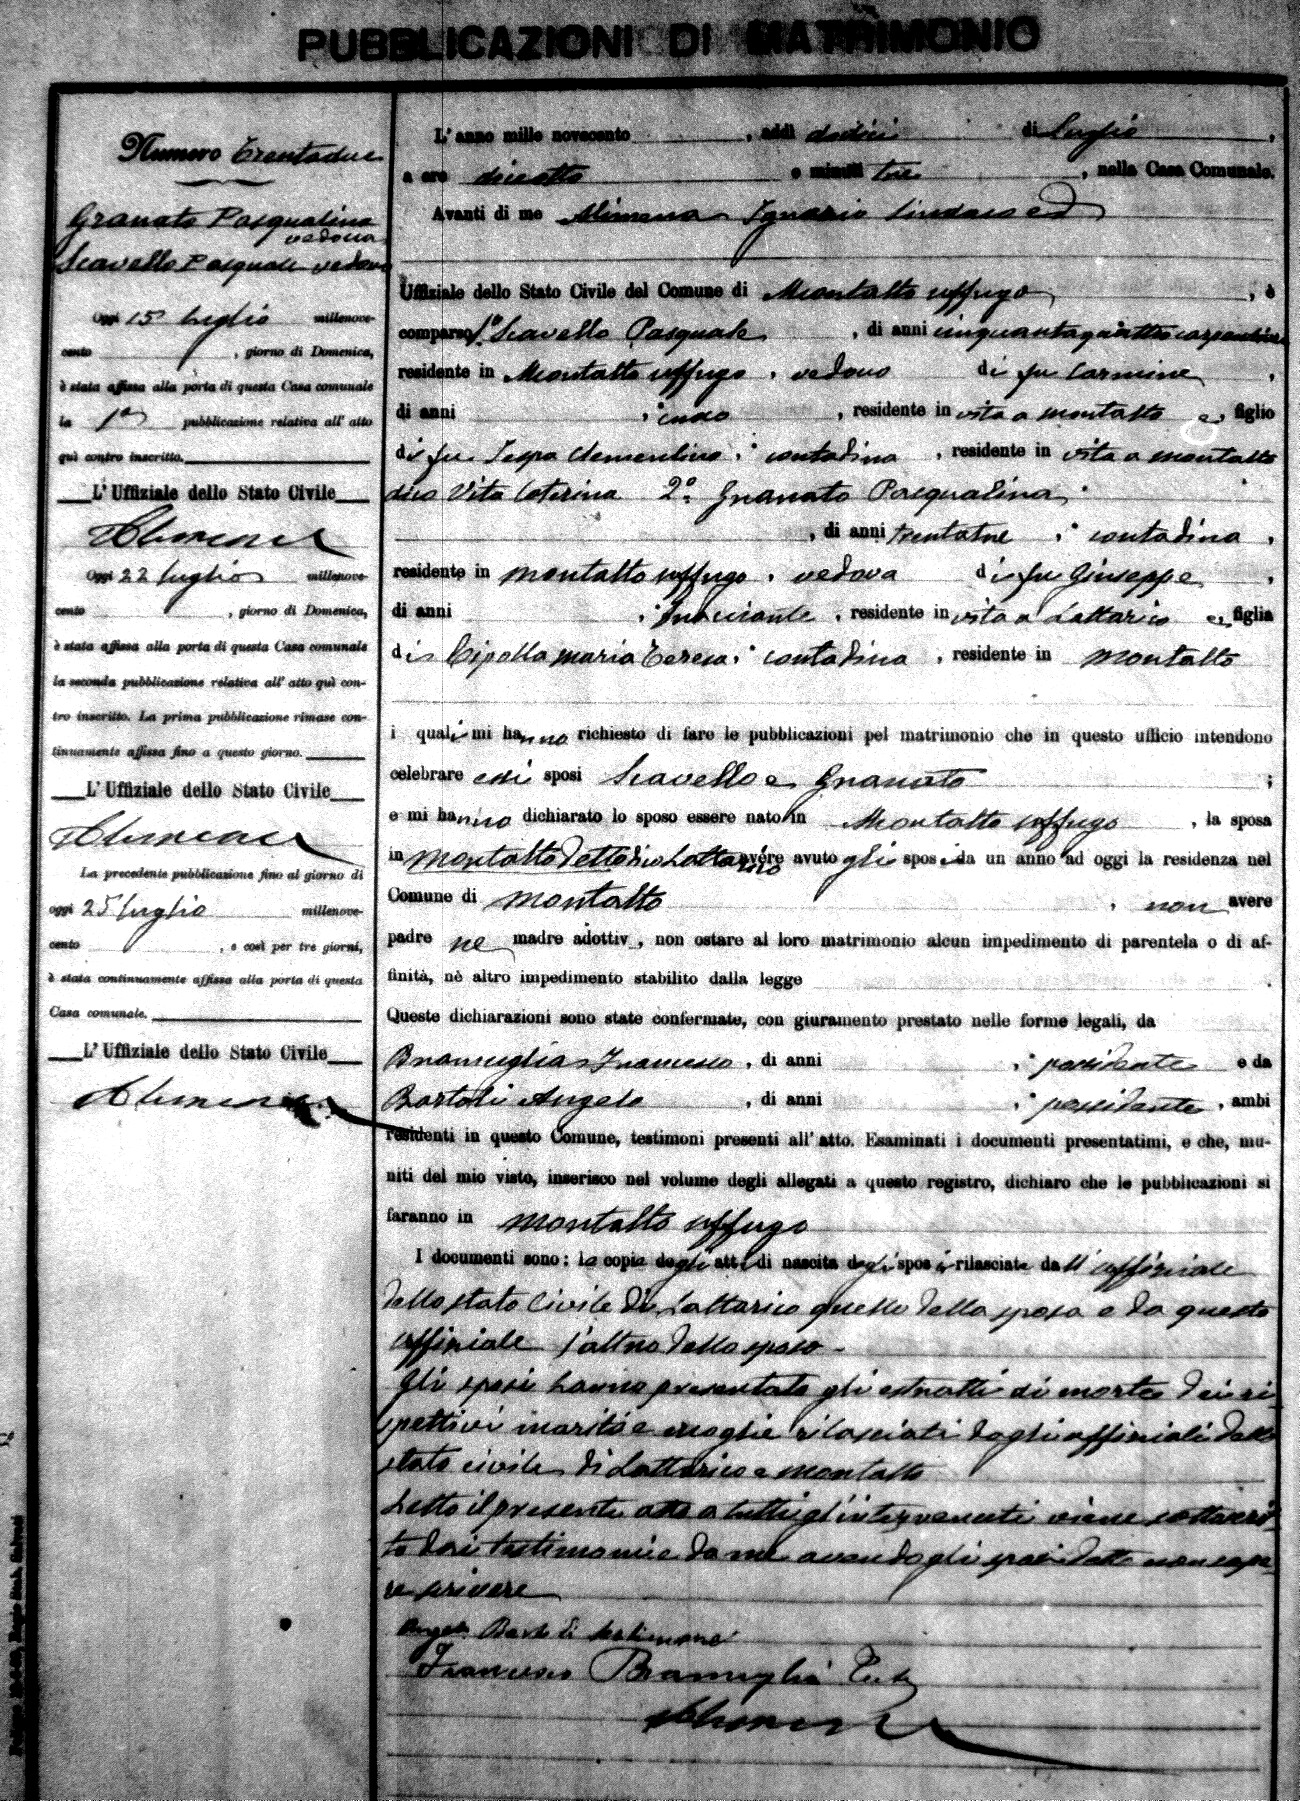 PUBBLICAZIONI DI MATRIMONIO
Numero Trentadue
Granato Pasqualina
vedova
Scavello Pasquale vedovo
Oggi 15 luglio millenove-
cento , giorno di Domenica,
è stata affissa alla porta di questa Casa comunale
la 1a pubblicazione relativa all' atto
quì contro inscritto.
L' Uffiziale dello Stato Civile
Alimena
Oggi 22 luglio millenove-
cento , giorno di Domenica,
è stata affissa alla porta di questa Casa comunale
la seconda pubblicazione relativa all' atto quì con-
tro inscritto. La prima pubblicazione rimase con-
tinuamente affissa fino a questo giorno.
L' Uffiziale dello Stato Civile
Alimena
La precedente pubblicazione fino al giorno di
oggi 25 luglio millenove-
cento , e così per tre giorni,
è stata continuamente affissa alla porta di questa
Casa comunale.
L' Uffiziale dello Stato Civile
Alimena
L' anno mille novecento , addì dodici di Luglio ,
a ore dieciotto e minuti tre , nella Casa Comunale.
Avanti di me Alimena Ignazio Sindaco ed
Uffiziale dello Stato Civile del Comune di Montalto uffugo , è
comparso 1º Scavello Pasquale , di anni cinquantaquattro
residente in Montalto uffugo , vedovo di fu Carmine ,
di anni , residente in vita a montalto e figlio
di fu Clementina , contadina , residente in vita a montalto
Vita Caterina 2º Granato Pasqualina
, di anni trentatre , contadina ,
residente in montalto uffugo , vedova di fu Giuseppe ,
di anni , , residente in vita a Lattarico e figlia
di Cipolla maria Teresa , contadina , residente in montalto
i quali mi hanno richiesto di fare le pubblicazioni pel matrimonio che in questo ufficio intendono
celebrare essi sposi Scavello e Granato ;
e mi hanno dichiarato lo sposo essere nato in Montalto uffugo , la sposa
in Lattarico avere avuto gli sposi da un anno ad oggi la residenza nel
Comune di montalto , non avere
padre ne madre adottiv , non ostare al loro matrimonio alcun impedimento di parentela o di af-
finità, nè altro impedimento stabilito dalla legge .
Queste dichiarazioni sono state confermate, con giuramento prestato nelle forme legali, da
Bramuglia Francesco , di anni , possidente e da
Bartoli Angelo , di anni , possidente , ambi
residenti in questo Comune, testimoni presenti all' atto. Esaminati i documenti presentatimi, e che, mu-
niti del mio visto, inserisco nel volume degli allegati a questo registro, dichiaro che le pubblicazioni si
faranno in montalto uffugo
I documenti sono: le copie degli atti di nascita degli sposi rilasciate dall' uffiziale
dello stato civile di Lattarico quello della sposa e da questo
uffiziale l'altro dello sposo -
Gli sposi hanno presentato gli estratti di morte dei ri-
spettivi marito e moglie rilasciati dagli uffiziali dello
stato civile di Lattarico e montalto
Letto il presente atto a tutti gl'intervenuti viene sottoscrit-
to dai testimoni e da me avendo gli sposi detto non sape-
re scrivere
Angelo Bartoli testimone
Francesco Bramuglia Test
Alimena